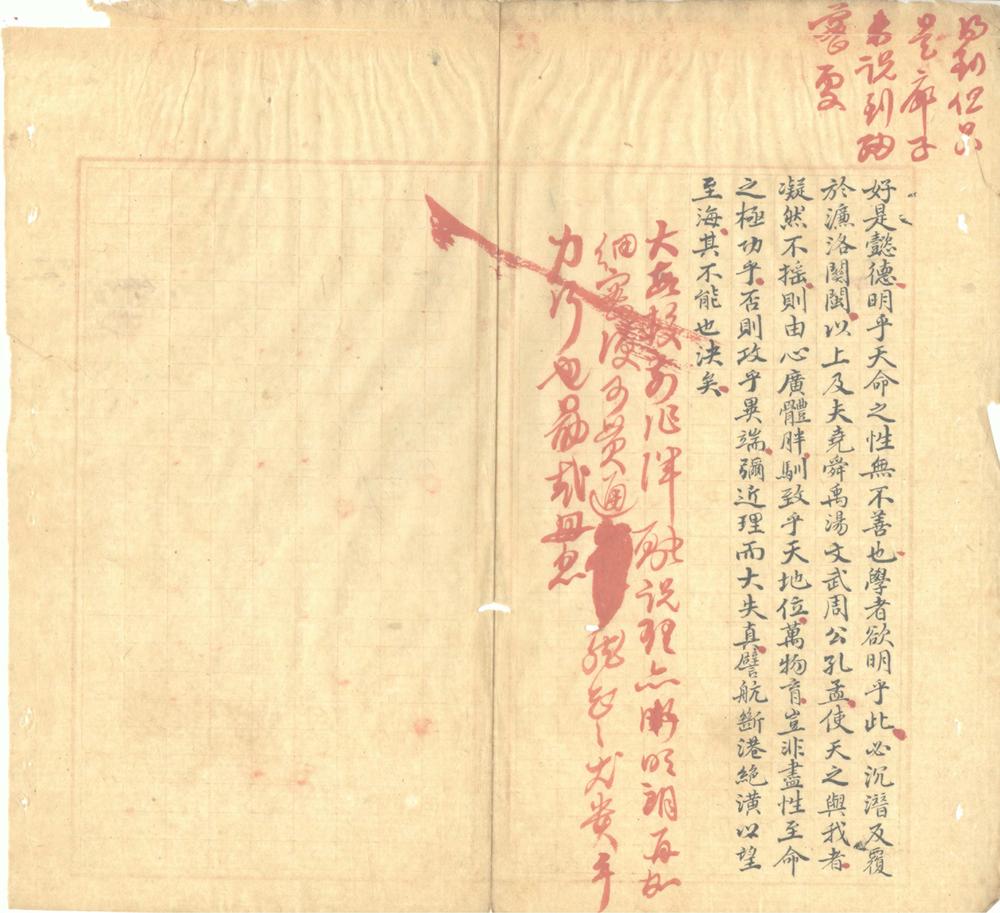 得到但只
是廓子
未说到细
密处
好是懿德明乎天命之性無不善也學者欲明乎此必沉潛反覆
於濂洛關閩以上及夫堯舜禹湯文武周公孔孟使天之與我者
凝然不搖則由心廣體胖馴致乎天地位萬物育豈非盡性至命
之極功乎否則攻乎異端彌近理而大失真譬航斷港絕潢以望
至海其不能也決矣
大致較前作渾融说理亦晰明朗再加
細密便可贯通 體之尤贵乎
力行也勗哉毋怠